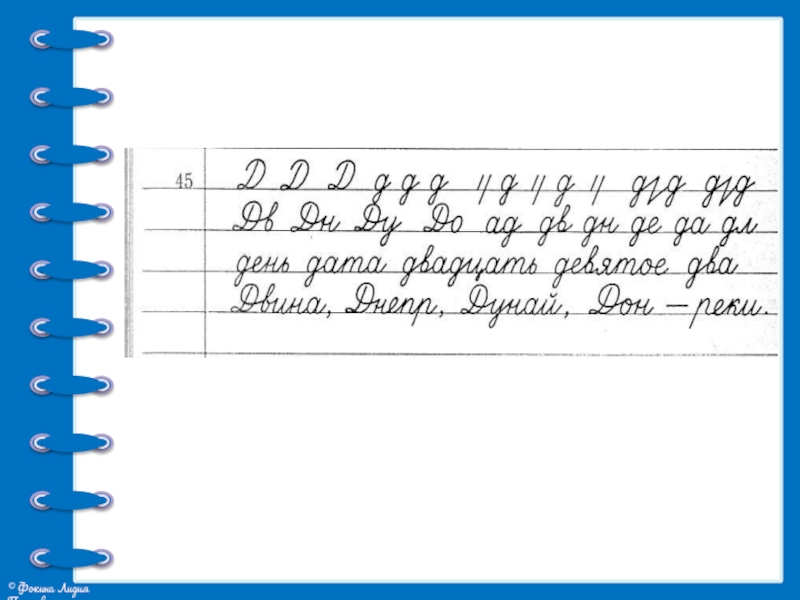 45 Д Д Д д д д д д дгд дгд
Дв Дн Ду До ад дв дн де да дл
день дата двадцать девятое два
Двина, Днепр, Дунай, Дон — реки.
© Фокина Лидия